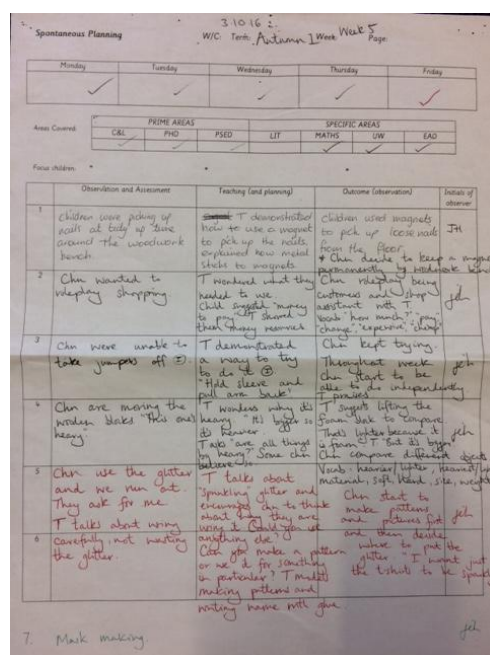 3.10.16
Spontaneous Planning W/C: Term: Autumn 1 Week Week 5 Page:
Monday Tuesday Wednesday Thursday Friday
PRIME AREAS SPECIFIC AREAS
Areas Covered C&L PHD PSED LIT MATHS UW EAD
Focus children:
Observation and Assessment Teaching (and planning) Outcome (observation) Initials of observer
1
Children were picking up
nails at tidy up time
around the woodwork
bench.
T demonstrated
how to use a magnet
to pick up the nails,
explained how metal
sticks to magnets.
Children used magnets
to pick up loose nails
from the floor.
* Chn decide to keep a magnet
permanently by woodwork bench
JH
2
Chn wanted to
roleplay shopping.
T wondered what they
needed to use.
Child suggested "money
to pay" T showed
them money resources.
Chn roleplay being
customers and shop
assistant with T.
Vocab "how much?" "pay"
"change", "expensive", "cheap"
jeh
3
Chn were unable to
take jumpers off
T demonstrated
a way to try
to do it
"Hold sleeve and
pull arm back"
Chn kept trying.
Throughout week
chn start to be
able to do independently
T praises
jeh
4
Chn are moving the
wooden blocks "This one's
heavy"
T wonders why it's
heavy. "It's bigger so
it's heavier"
T asks "are all things
big heavy?" Some chn
believe
T suggests lifting the
foam block to compare.
"That's lighter because it
is foam" T "But it's bigger"
Chn compare different objects
Vocab: heavier/lighter,
material, soft, hard, size, weight
jeh
5
Chn use the glitter
and we run out.
They ask for me
T talks about
"sprinkling" glitter and
encourages chn to think
about how they are
using it. Could you use
anything else?
Chn start to
make patterns
and pictures first
and then decide
where to put the
glitter. "I want just
the t-shirt to be sparkly
jeh
6
T talks about using
carefully, not wasting
the glitter.
Can you make a pattern
or use it for something
in particular? T models
making patterns and
writing name with glue.
7. Mark making.
jeh